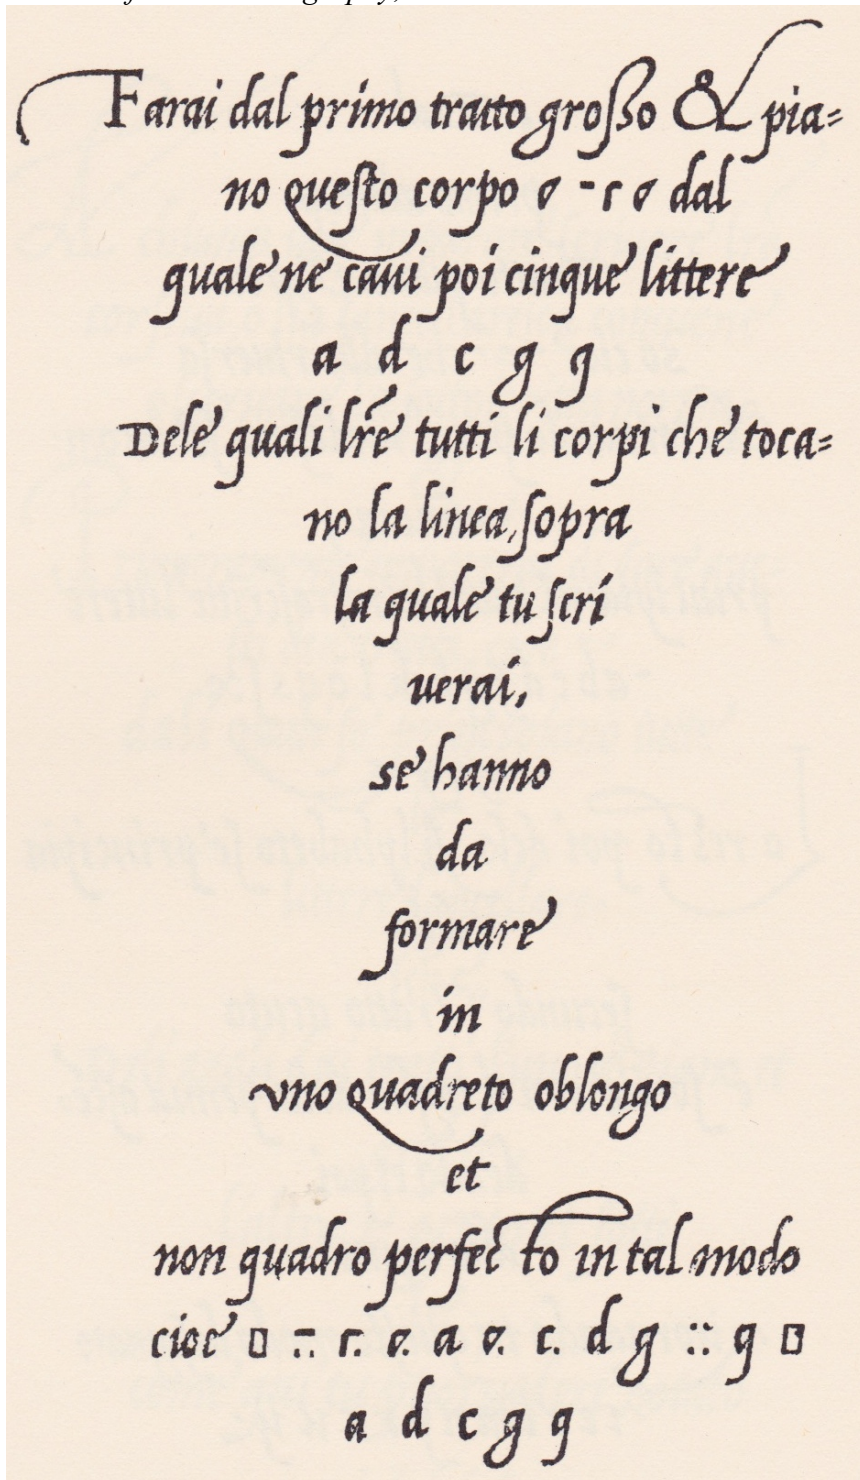 Farai dal primo tratto grosso & pia=
no questo corpo o - r o dal
quale ne caui poi cinque littere
a d c g q
Dele quali lre tutti li corpi che toca=
no la linea, sopra
la quale tu scri
uerai,
se hanno
da
formare
in
vno quadreto oblongo
et
non quadro perfecto in tal modo
cioe a c. d g q
a d c g q